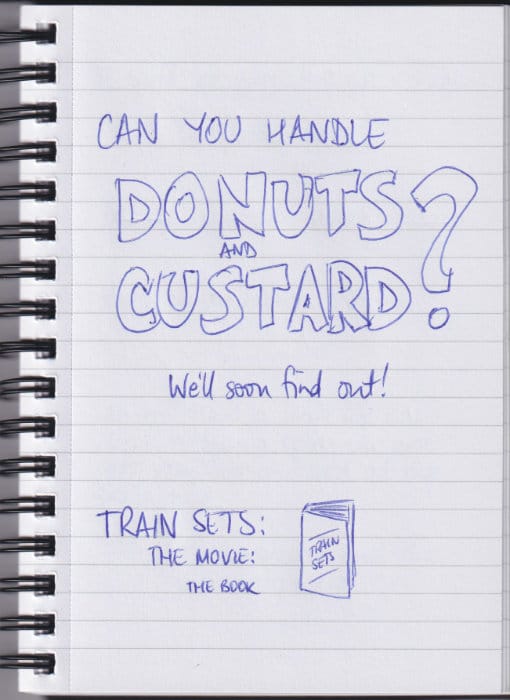 CAN YOU HANDLE
DONUTS
AND
CUSTARD?
We'll soon find out!
TRAIN SETS:
THE MOVIE:
THE BOOK
TRAIN
SETS